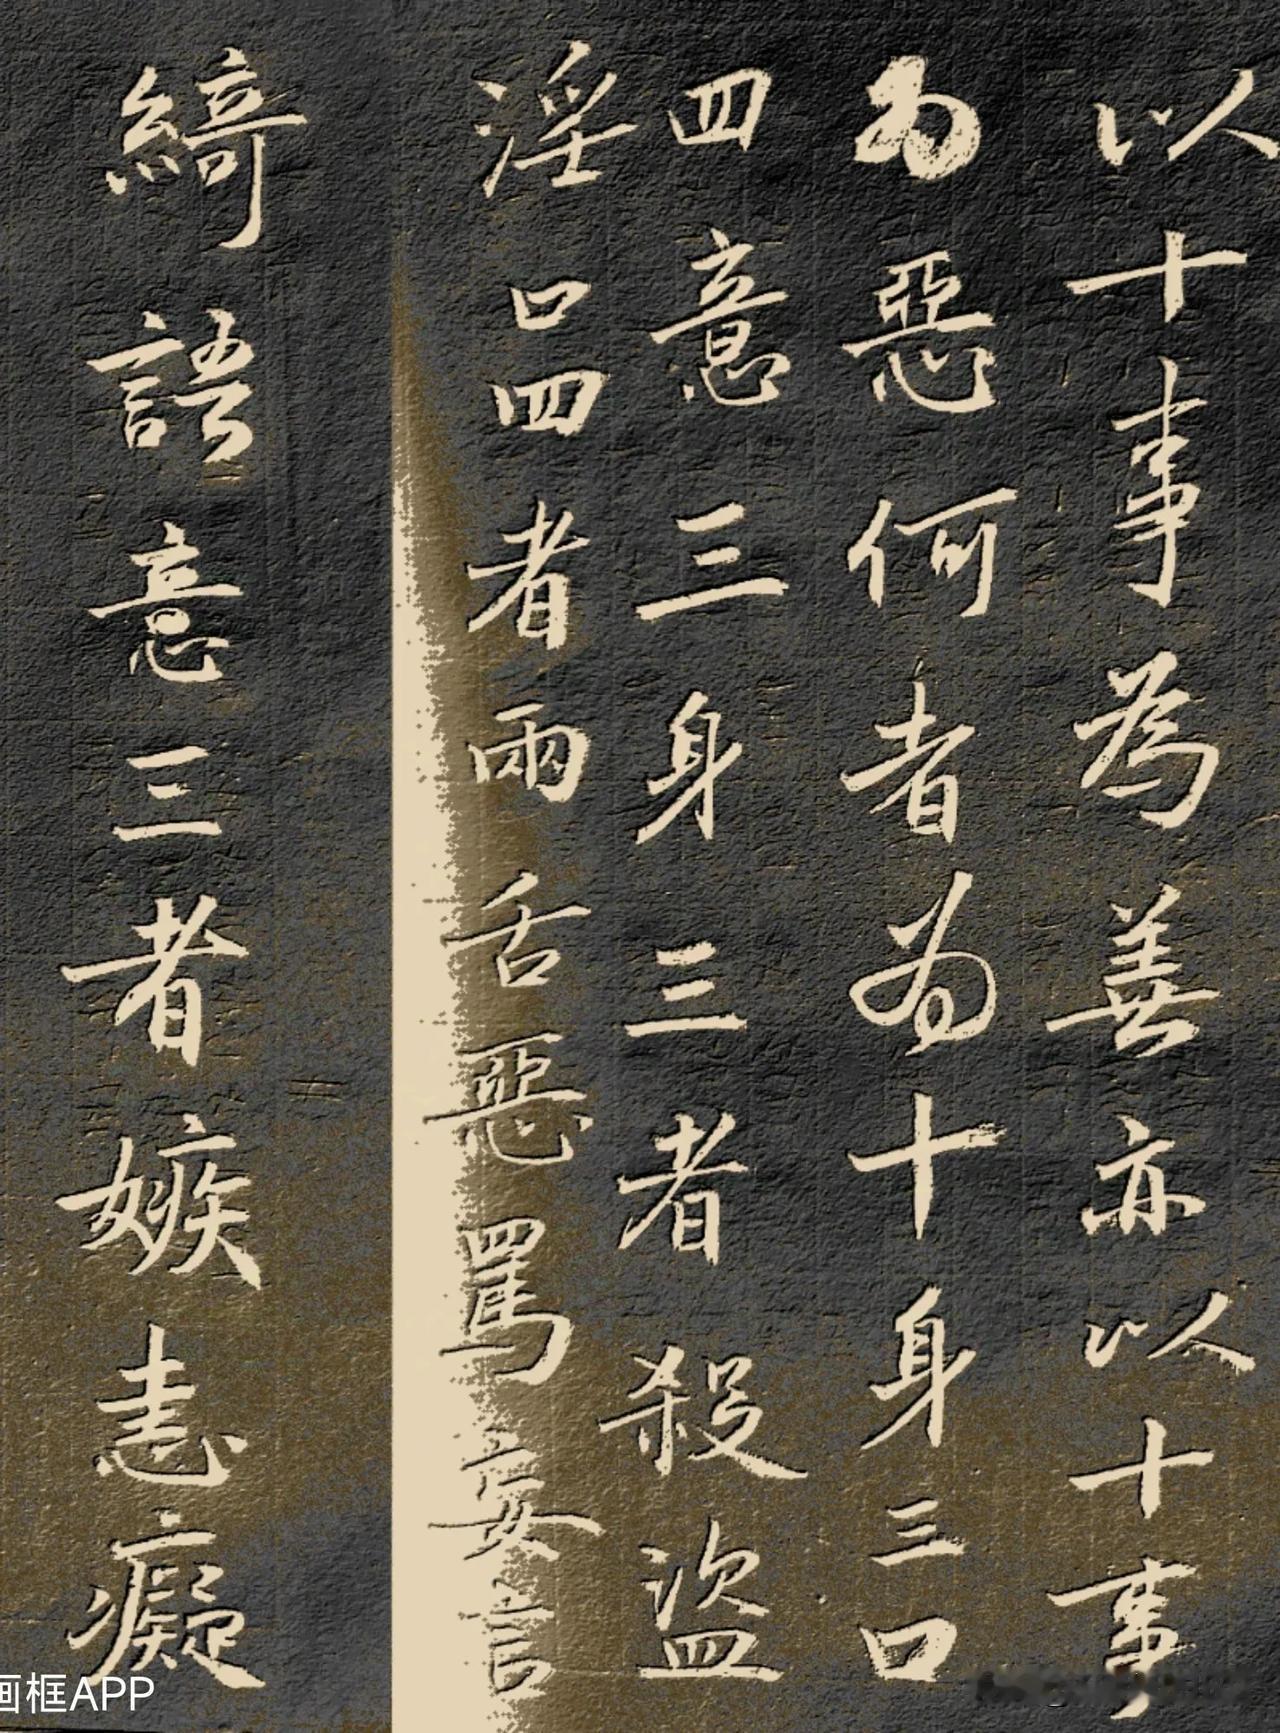 以十事為善亦以十事
為惡何者為十身三口
四意三身三者殺盜
淫口四者兩舌惡罵妄言
綺語意三者嫉恚癡
画框APP